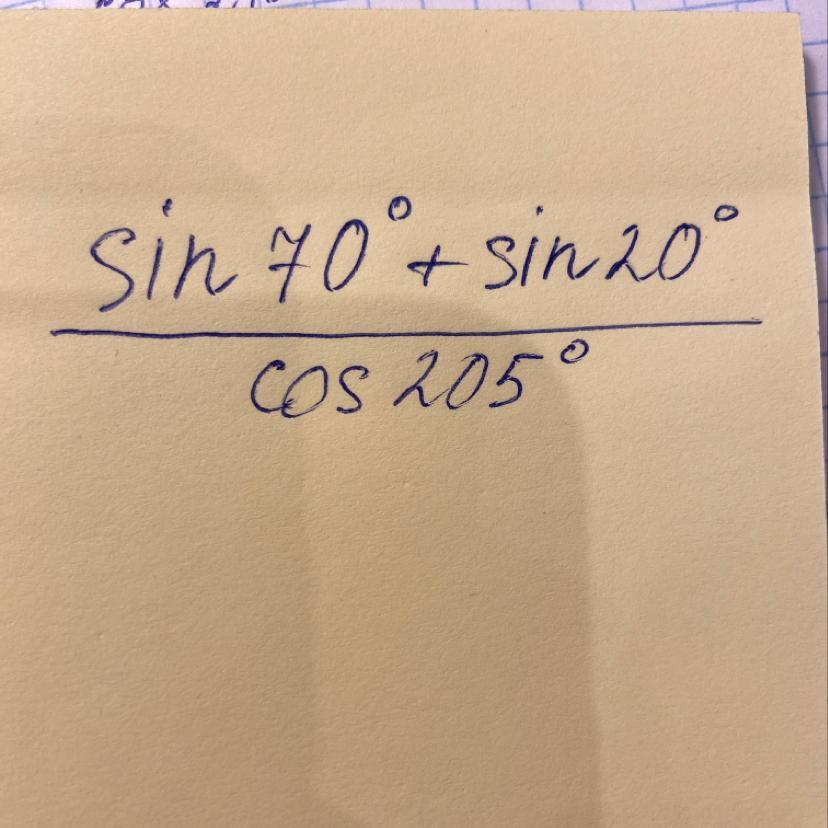 sin 70° + sin 20°
cos 205°